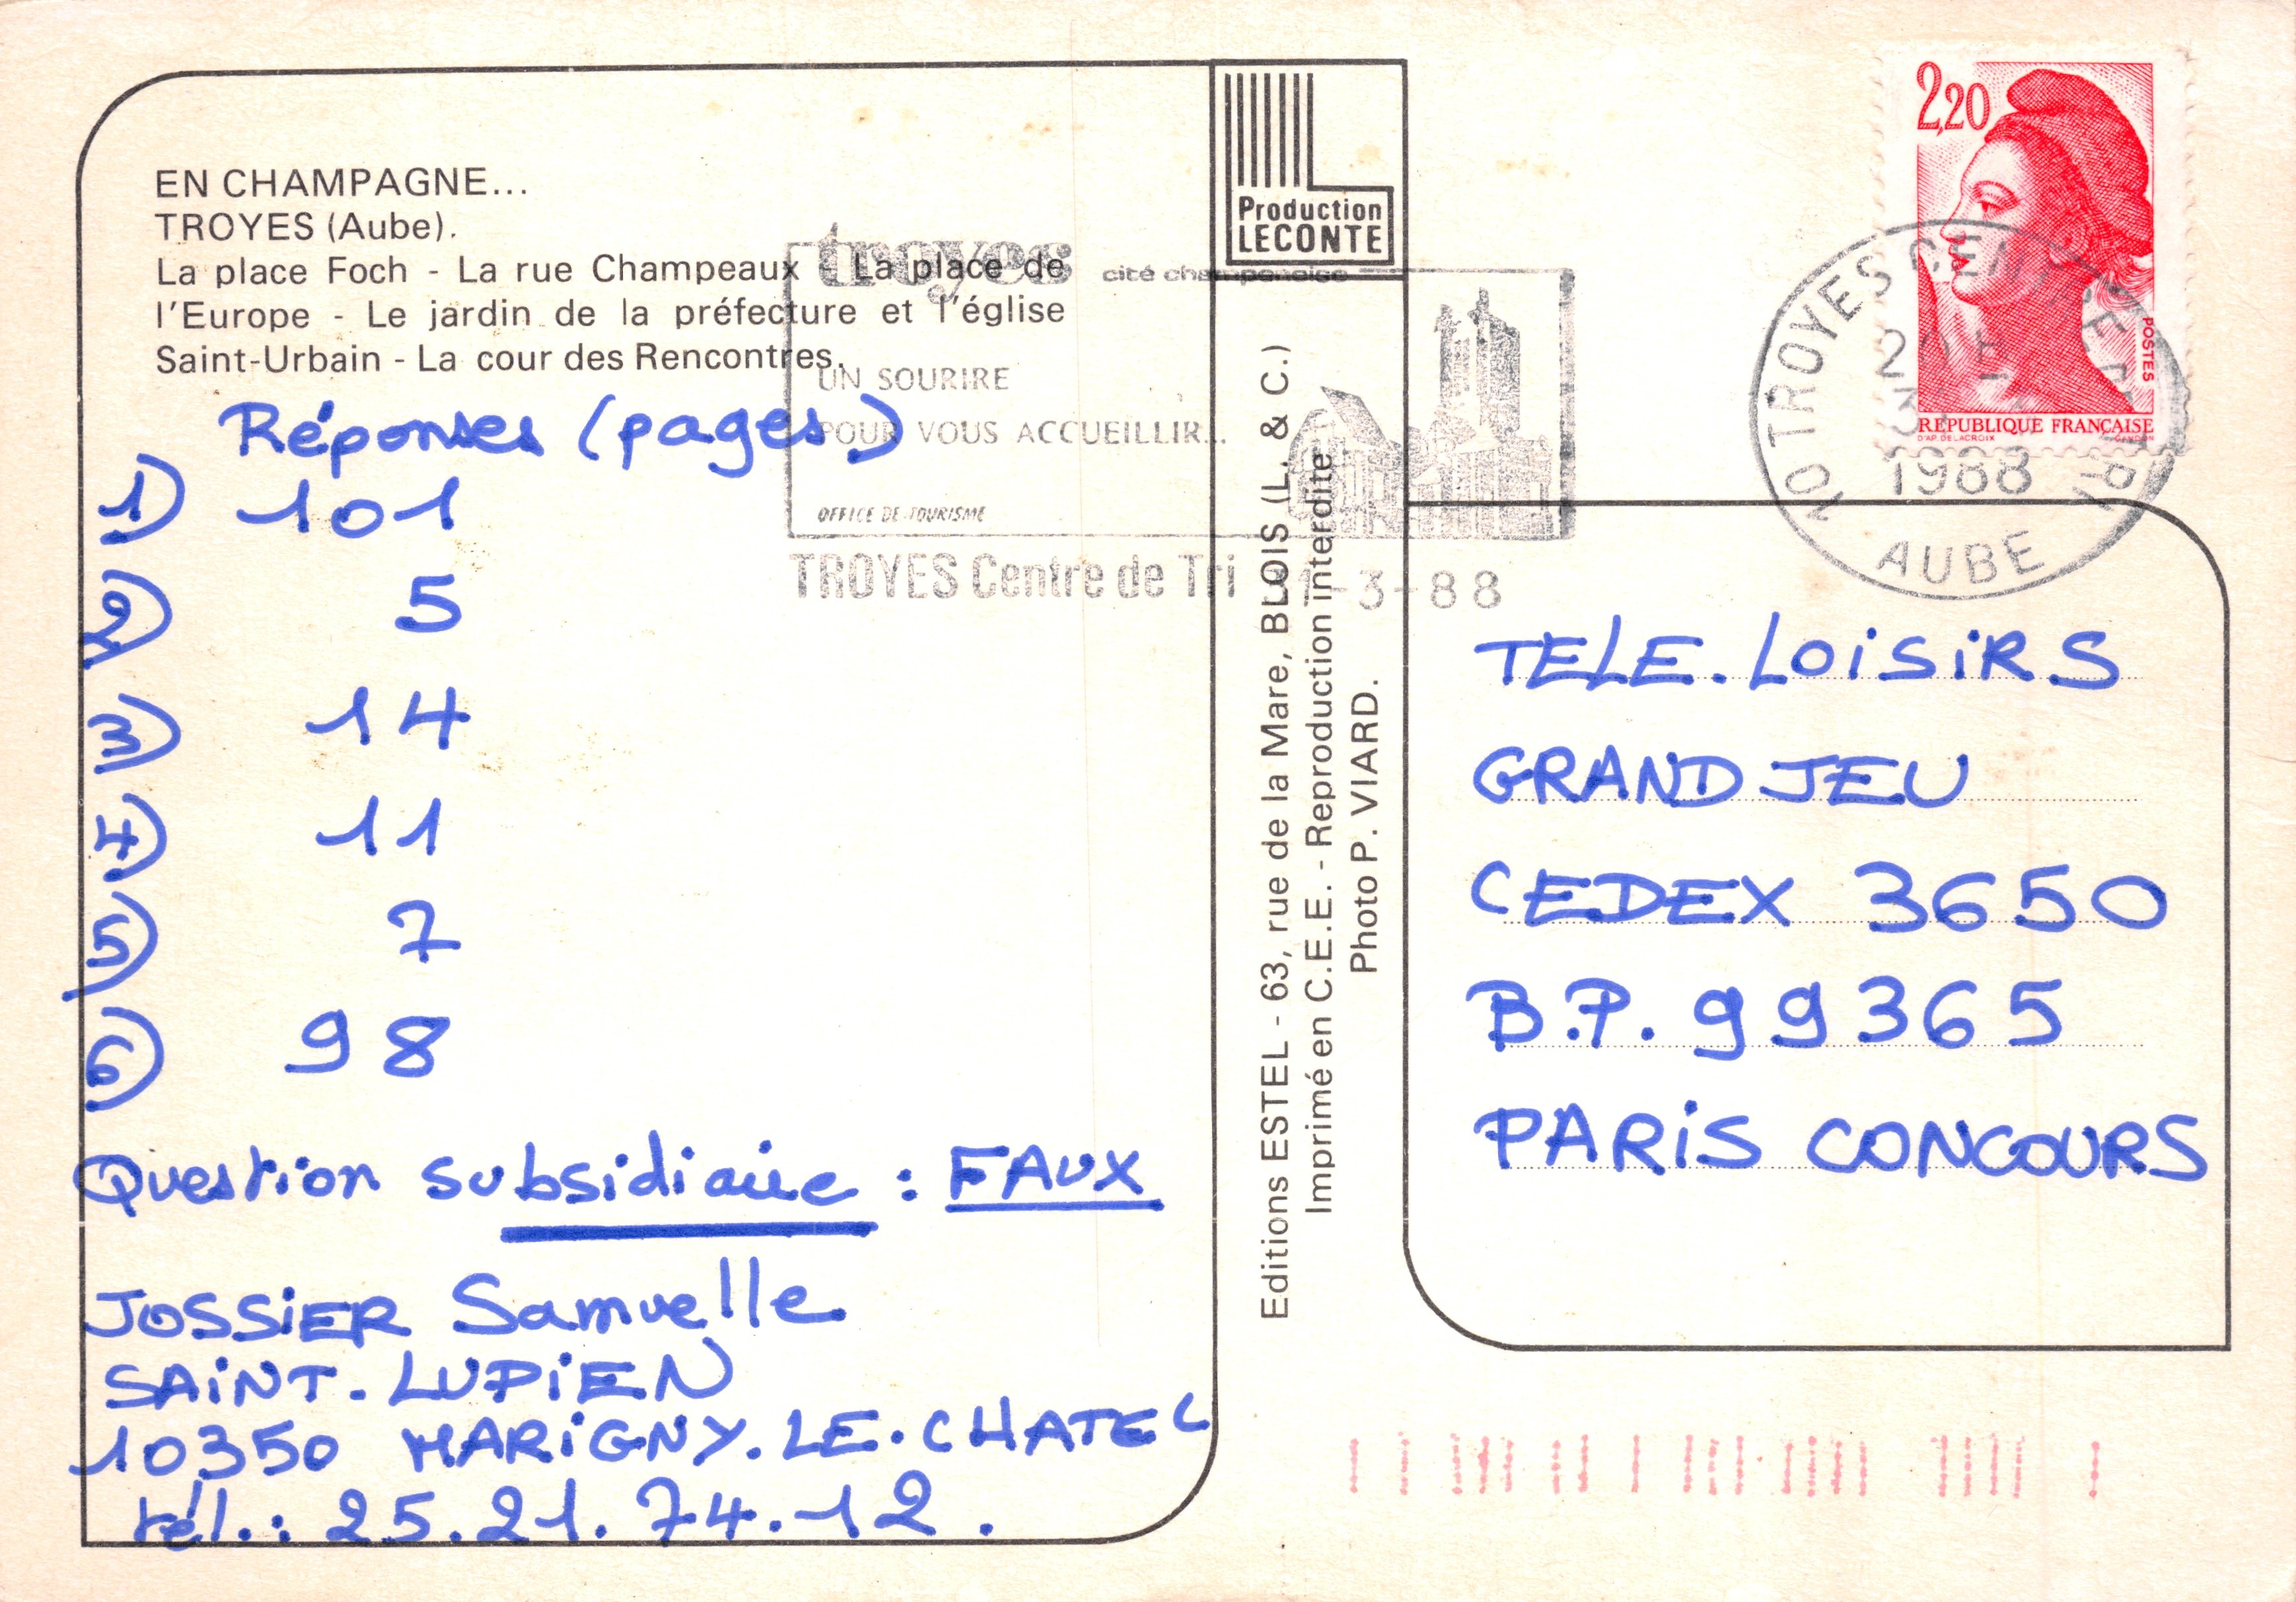 EN CHAMPAGNE...
TROYES (Aube).
La place Foch - La rue Champeaux - La place de
l'Europe - Le jardin de la préfecture et l'église
Saint-Urbain - La cour des Rencontres.
troyes cité champenoise
UN SOURIRE
POUR VOUS ACCUEILLIR...
OFFICE DE TOURISME
TROYES Centre de Tri 1-3-88
Réponses (pages)
1) 101
2) 5
3) 14
4) 11
5) 7
6) 98
Question subsidiaire : FAUX
JOSSiER Samuelle
SAiNT. LUPiEN
10350 MARiGNY. LE. CHATEL
tél. : 25.21.74.12.
Production
LECONTE
Editions ESTEL - 63, rue de la Mare, BLOIS (L. & C.)
Imprimé en C.E.E. - Reproduction interdite
Photo P. VIARD.
2,20
POSTES
REPUBLIQUE FRANÇAISE
D'AP. DELACROIX GANDON
10 TROYES CENTRE DE TRI
1988
AUBE
TELE. LOiSiRS
GRAND JEU
CEDEX 3650
B.P. 99365
PARiS CONCOURS